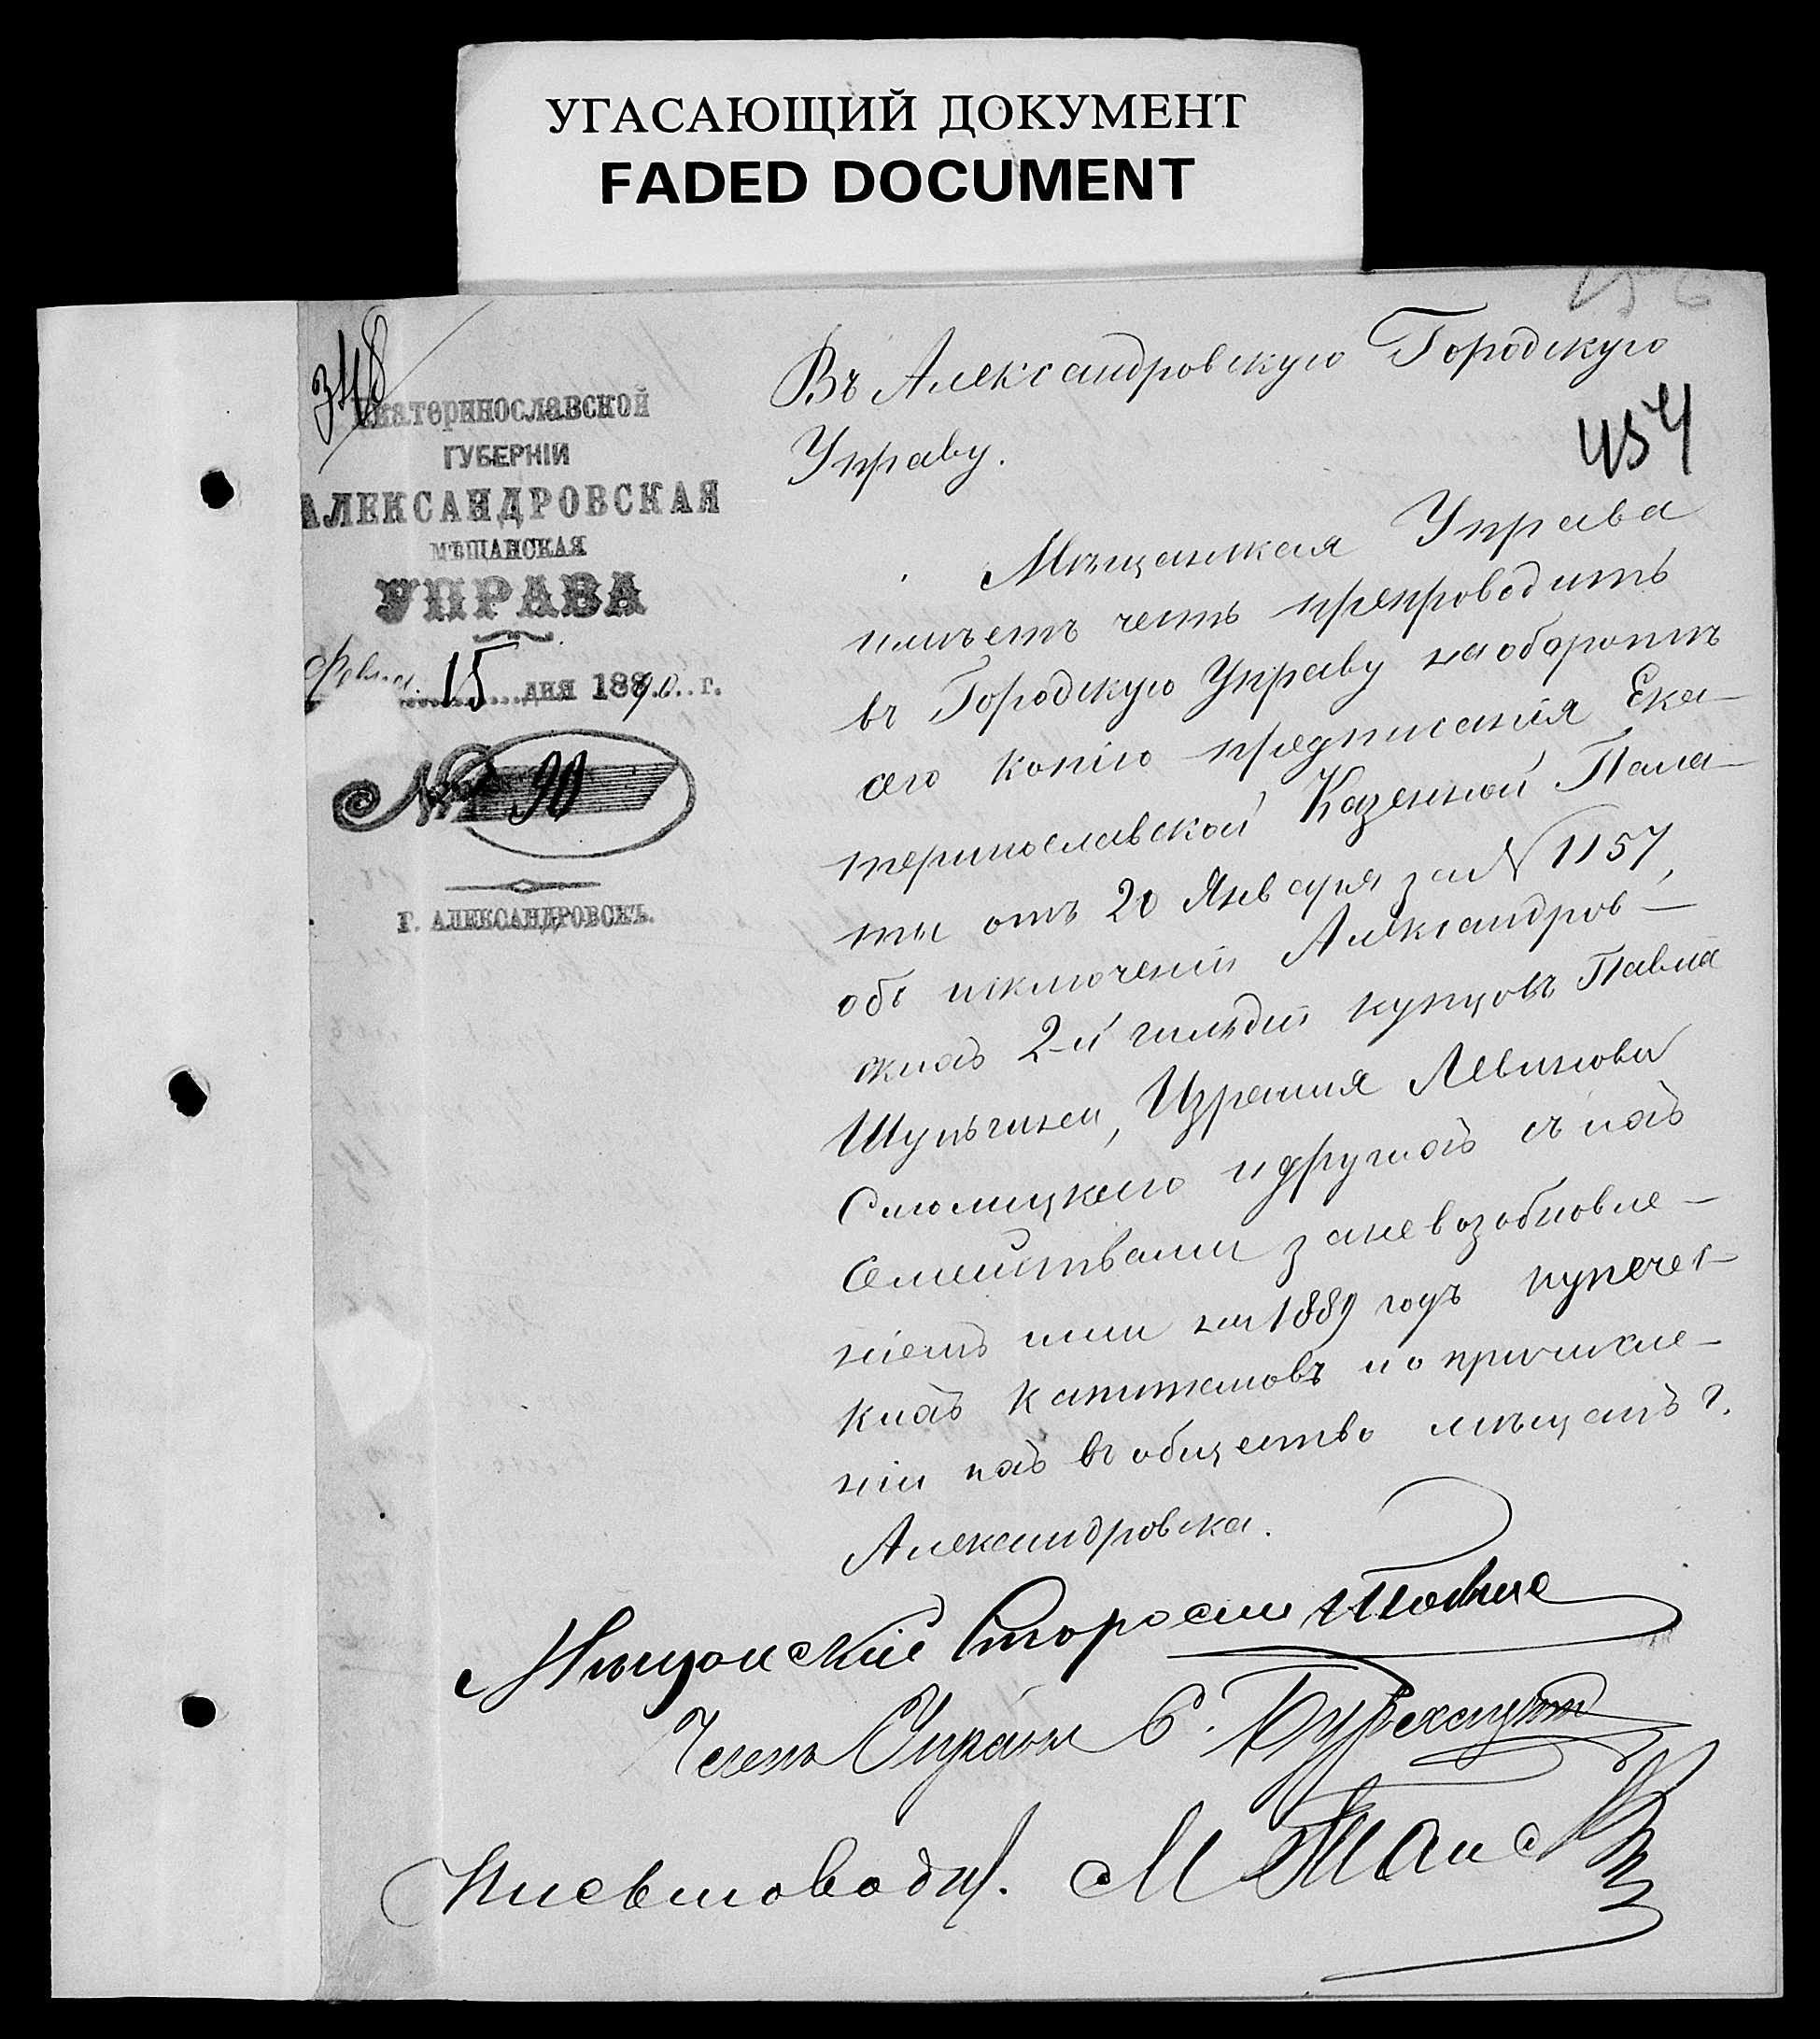 УГАСАЮЩИЙ ДОКУМЕНТ
FADED DOCUMENT
348
Екатеринославской
ГУБЕРНІИ
АЛЕКСАНДРОВСКАЯ
МѢЩАНСКАЯ
УПРАВА
15 дня 1890 г.
№ 90
Г. АЛЕКСАНДРОВСКЪ.
Въ Александровскую Городскую
Управу.
457
Мѣщанская Управа
имѣетъ честь препроводить
въ Городскую Управу на оборотѣ
сего копію предписанія Ека-
теринославской Казенной Пала-
ты отъ 20 Января за № 1157,
объ исключеніи Александров-
скихъ 2-й гильдіи купцовъ Павла
Шульгина, Израиля Левинова
Смолицкаго и другихъ съ ихъ
семействами за невозобновле-
ніемъ ими на 1889 годъ купечес-
кихъ капиталовъ и о причисле-
ніи ихъ въ общество мѣщанъ г.
Александровска.
Мѣщанскій Староста
Членъ Управы С.
Письмоводит. М